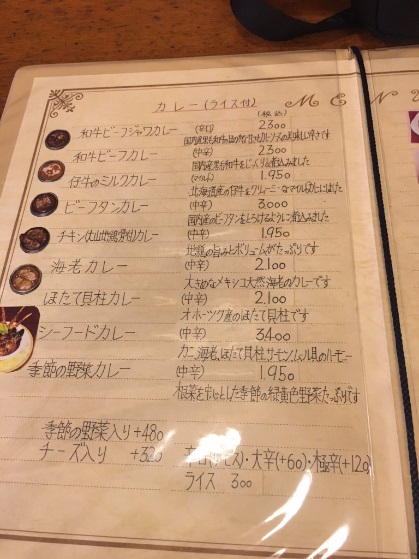 カレー(ライス付)
MENU
(税込)
和牛ビーフジャワカレー (辛口) 2300
和牛ビーフカレー (中辛) 2300
国内産黒毛和牛をじっくり煮込みました
仔牛のミルクカレー (マイルド) 1.950
北海道産の仔牛をクリーミーなマイルドカレーにしました
ビーフタンカレー (中辛) 3.000
国内産のビーフタンをとろけるようにじっくり煮込みました
チキン(大山地鶏骨付)カレー (中辛) 1.950
地鶏の旨みとボリュームがたっぷりです
海老カレー (中辛) 2.100
大きめなメキシコ天然海老のカレーです
ほたて貝柱カレー (中辛) 2.100
オホーツク産のほたて貝柱です
シーフードカレー (中辛) 3.400
カニ、海老、ほたて貝柱、サーモン、ムール貝のハーモニー
季節の野菜カレー (中辛) 1.950
根菜を中心とした季節の緑黄色野菜たっぷりです
季節の野菜入り +480
チーズ入り +320
辛口(サービス)・大辛(+60)・極辛(+120)
ライス 300